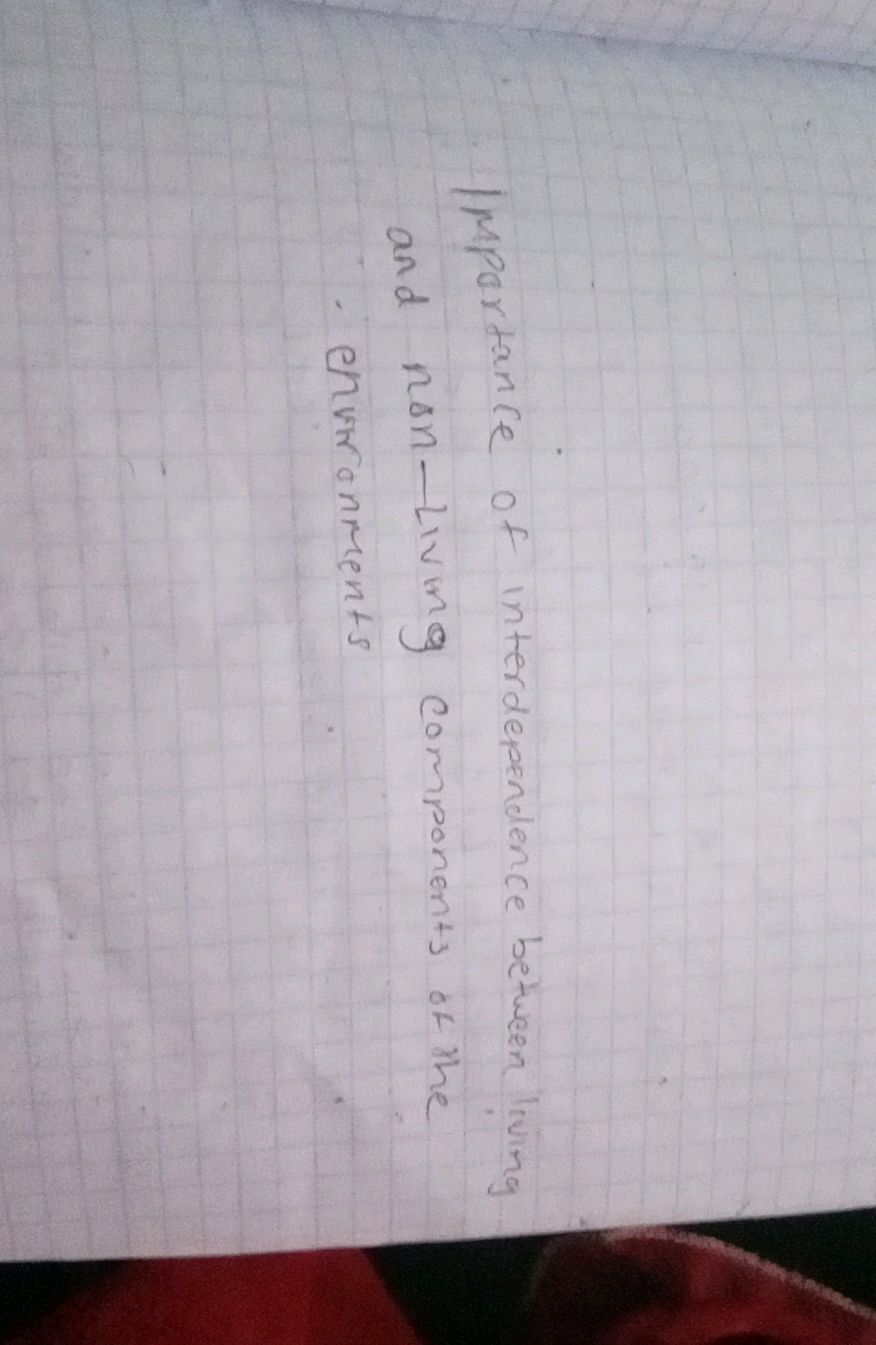 Importance of interdependence between living
and non-Living components of the
environments